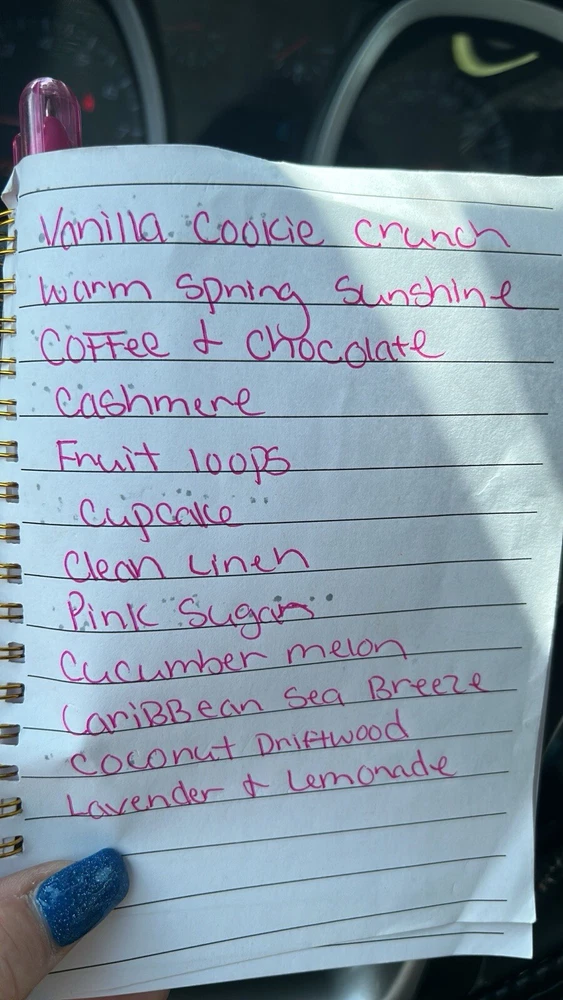 Vanilla Cookie crunch
Warm Spring Sunshine
Coffee & Chocolate
Cashmere
Fruit loops
Cupcake
Clean Linen
Pink Sugar
Cucumber melon
Caribbean Sea Breeze
Coconut Driftwood
Lavender & Lemonade